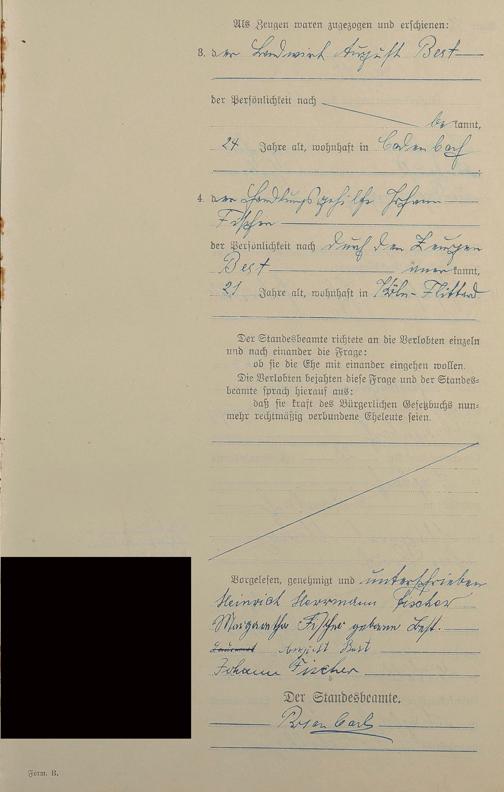 Als Zeugen waren zugezogen und erschienen:
3. der Landwirt August Best
der Persönlichkeit nach
be kannt,
24 Jahre alt, wohnhaft in Cadenbach
4. der Handlungsgehilfe Johann
Fischer
der Persönlichkeit nach durch den Zeugen
Best aner kannt,
21 Jahre alt, wohnhaft in Köln-Flittard
Der Standesbeamte richtete an die Verlobten einzeln
und nach einander die Frage:
ob sie die Ehe mit einander eingehen wollen.
Die Verlobten bejahten diese Frage und der Standes-
beamte sprach hierauf aus:
daß sie kraft des Bürgerlichen Gesetzbuchs nun-
mehr rechtmäßig verbundene Eheleute seien.
Vorgelesen, genehmigt und unterschrieben
Heinrich Herrmann Fischer
Margaretha Fischer geborene Best.
August Best
Johann Fischer
Der Standesbeamte.
Form. B.